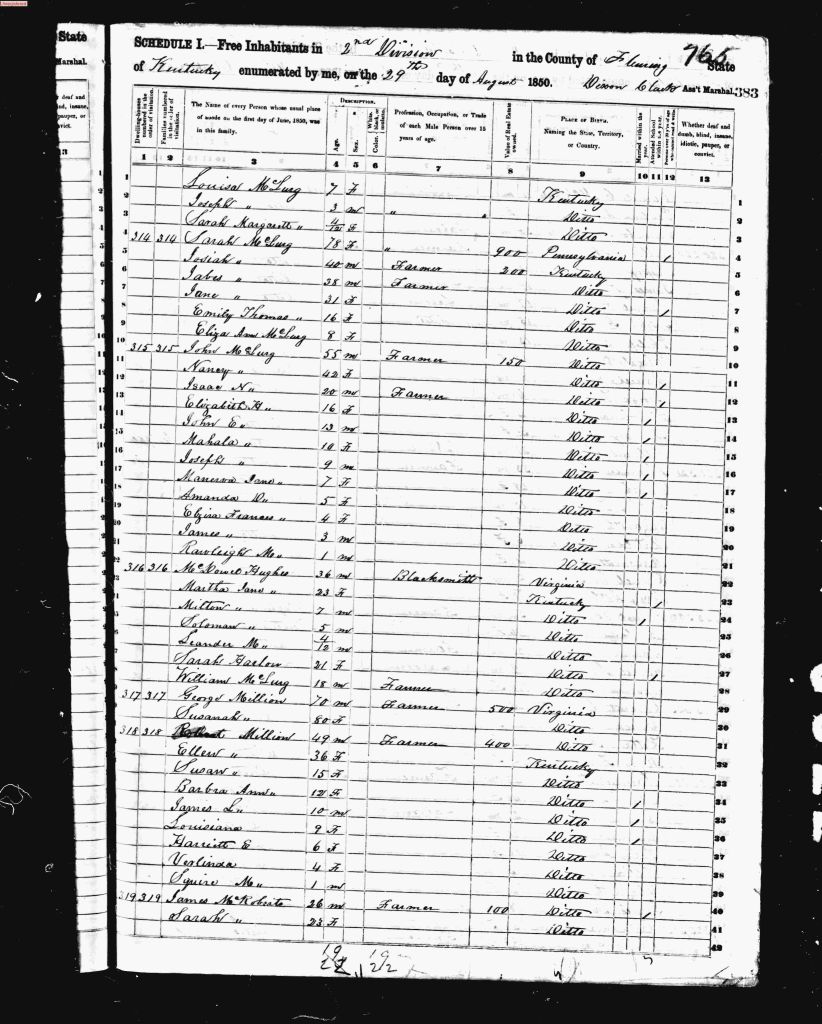 State
Marshal.
765
SCHEDULE I.—Free Inhabitants in 2nd Division in the County of Fleming State
of Kentucky enumerated by me, on the 29th day of August 1850. Dixon Clark Ass't Marshal. 383
Dwelling-houses numbered in the order of visitation.
Families numbered in the order of visitation.
The Name of every Person whose usual place of abode on the first day of June, 1850, was in this family.
DESCRIPTION.
Age.
Sex.
Color. White, black, or mulatto.
Profession, Occupation, or Trade of each Male Person over 15 years of age.
Value of Real Estate owned.
PLACE OF BIRTH. Naming the State, Territory, or Country.
Married within the year.
Attended School within the year.
Persons over 20 y'rs of age who cannot read & write.
Whether deaf and dumb, blind, insane, idiotic, pauper, or convict.
1 2 3 4 5 6 7 8 9 10 11 12 13
1 Louisa McLurg 7 F Kentucky 1
2 Joseph " 3 m " Ditto 2
3 Sarah Margarett " 4/12 F Ditto 3
4 314 314 Sarah McLurg 78 F " 900 Pennsylvania / 4
5 Josiah " 40 m Farmer 200 Kentucky 5
6 Jabes " 38 m Farmer Ditto 6
7 Jane " 31 F Ditto / 7
8 Emily Thomas " 16 F Ditto 8
9 Eliza Ann McLurg 8 F Ditto 9
10 315 315 John McLurg 55 m Farmer 150 Ditto 10
11 Nancy " 42 F Ditto / 11
12 Isaac N " 20 m Farmer Ditto / 12
13 Elizabeth H " 16 F Ditto / 13
14 John E " 13 m Ditto / 14
15 Mahala " 10 F Ditto / 15
16 Joseph " 9 m Ditto / 16
17 Manerva Jane " 7 F Ditto / 17
18 Amanda D " 5 F Ditto 18
19 Elzira Frances " 4 F Ditto 19
20 James " 3 m Ditto 20
21 Rawleigh M " 1 m Ditto 21
22 316 316 McDowel Hughes 36 m Blacksmith Virginia 22
23 Martha Jane " 23 F Kentucky / 23
24 Milton " 7 m Ditto / 24
25 Soloman " 5 m Ditto 25
26 Leander M " 4/12 m Ditto 26
27 Sarah Harlow 21 F Ditto / 27
28 William McLurg 18 m Farmer Ditto 28
29 317 317 George Million 70 m Farmer 500 Virginia 29
30 Susanah " 80 F Ditto 30
31 318 318 Million 49 m Farmer 400 Ditto 31
32 Ellen " 36 F Kentucky 32
33 Susan " 15 F Ditto 33
34 Barbra Ann " 12 F Ditto / 34
35 James L " 10 m Ditto / 35
36 Louisiana 9 F Ditto / 36
37 Harriett E 6 F Ditto 37
38 Verlinda 4 F Ditto 38
39 Squire M " 1 m Ditto 39
40 319 319 James McRoberts 26 m Farmer 100 Ditto / 40
41 Sarah " 23 F Ditto 41
42
19
22
19
22